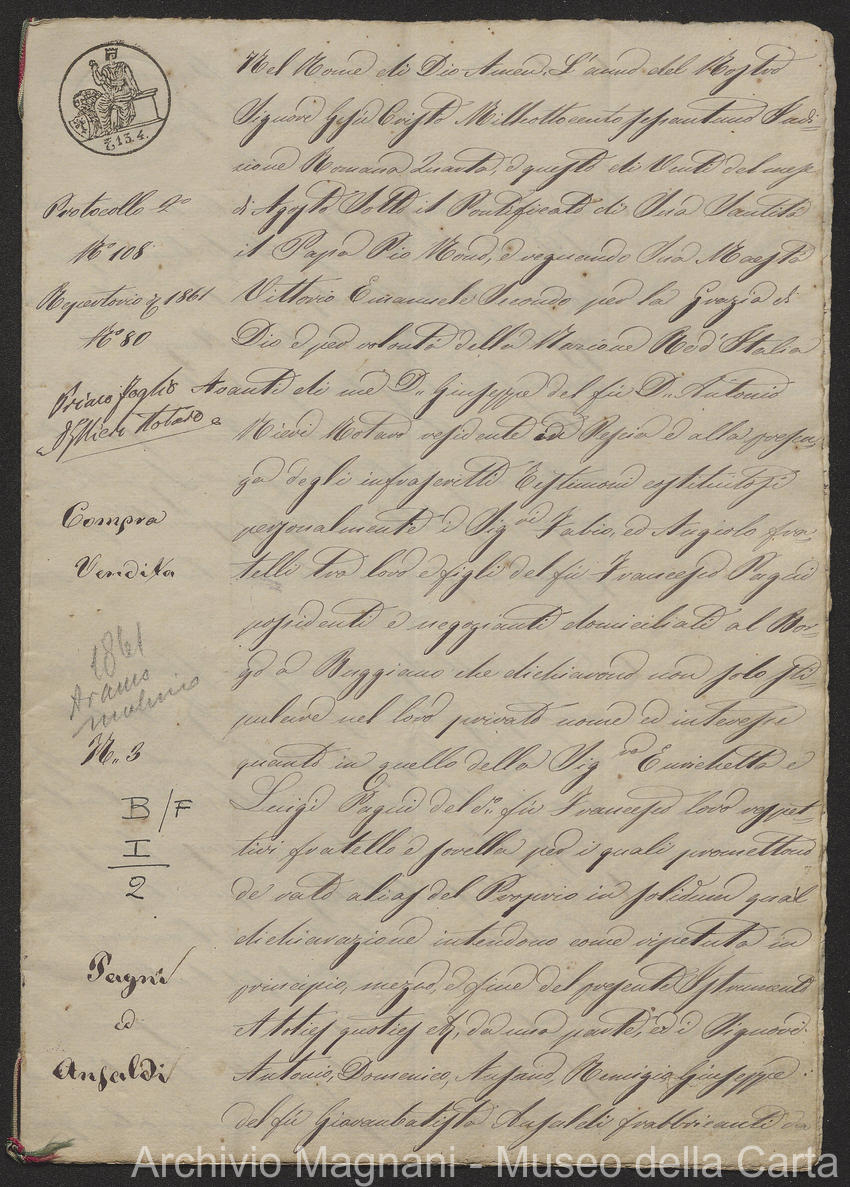 13.4.
Protocollo 2º
Nº 108
Repertorio 1861
Nº 80
Primo foglio
Nieri Notaro
Compra
Vendita
1861
Aramo
mulino
N.. 3
B/F
I
2
Pagni
ed
Ansaldi
Nel Nome di Dio Amen. L'anno del Nostro
Signore Gesù Cristo Milleottocentosessantuno Indi=
zione Romana Quarta, e questo dì Venti del mese
di Agosto Sotto il Pontificato di Sua Santità
il Papa Pio Nono, e regnando Sua Maestà
Vittorio Emanuele Secondo per la grazia di
Dio e per volontà della Nazione Re d'Italia
Avanti di me D.. Giuseppe del fù D.. Antonio
Nieri Notaro residente in Pescia e alla presen=
za degli infrascritti Testimoni costituitisi
personalmente i Sig.ri Fabio, ed Angiolo fra=
telli tra loro e figli del fù Francesco Pagni
possidenti e negozianti domiciliati al Bor=
go a Buggiano che dichiarono non solo sti=
pulare nel loro privato nome ed interesse
quanto in quello della Sig.ra Enrichetta e
Luigi Pagni del fù Francesco loro respet=
tivi fratello e sorella per i quali promettono
de rato alias del Proprio in solidum qual
dichiarazione intendono come ripetuta in
principio, mezzo, e fine del presente Istrumento
et toties quoties da una parte, ed i Signori
Antonio, Domenico, Ansano, Remigio Giuseppe
del fù Giovanbatista Ansaldi fabbricanti da
Archivio Magnani - Museo della Carta